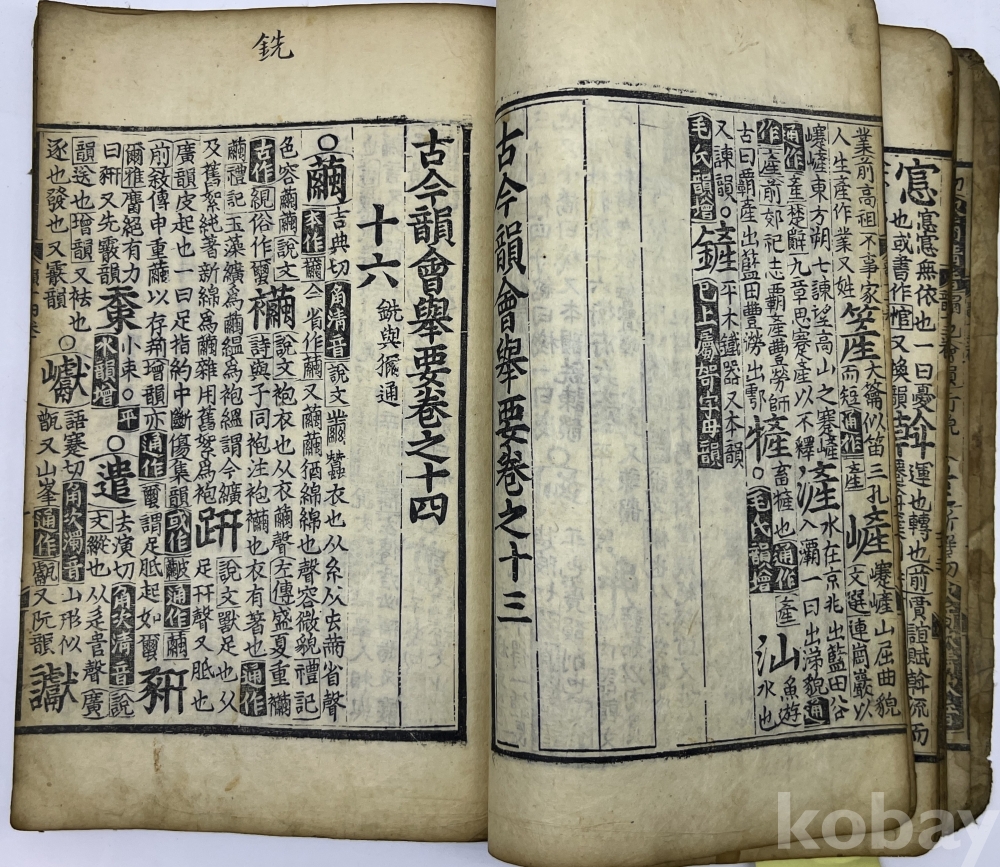 惌惌無依也一曰憂
也或書作悺又換韻
斡運也轉也前賈誼賦斡流而
業前高祖不事家
人生產作業又姓
簅
大籥似笛三孔
而短通作產
嵼
嵼山屈曲貌
文選連崗巖以
嵼東方朔七諫望高山之蹇嵼
通作產楚辭九章思蹇產以不釋
滻
水在京兆出藍田谷
入灞一曰出涕貌通
作產前郊祀志霸產豐澇師
古曰霸產出藍田豐澇出鄠
㹌
畜㹌也通作產
○毛氏韻增
汕
魚游
水也
又諫韻○
鏟
平木鐵器又本韻
毛氏韻增
已上屬字母韻
古今韻會舉要卷之十三
銑
古今韻會舉要卷之十四
十六
銑與獮通
○繭
吉典切角清音說文
蠶衣也从糸从虫省聲
或作仝省作又繭繭猶綿綿也聲容微貌禮記
色容繭繭說文
襺
說文袍衣也从衣繭聲左傳盛夏重襺
古作絸俗作
詩與子同袍注袍襺也衣有著也通作
繭禮記玉藻纊爲繭縕爲袍縕謂今纊
及舊絮純著新綿爲繭雜用舊絮爲袍
趼
說文獸足也从
足幵聲又胝也
廣韻皮起也一曰足指約中斷傷集韻或作通作繭
前敘傳申重繭以存荊增韻亦通作謂足胝起如
豜
爾雅麕絕有力
曰豜又先霰韻
小束○平
水韻增
○遣
去演切角次清音說
文縱也从辵聲廣
韻送也增韻又祛也
逐也發也又霰韻
○巘
語蹇切角次濁音山形似
甑又山峯通作甗又阮韻
讞